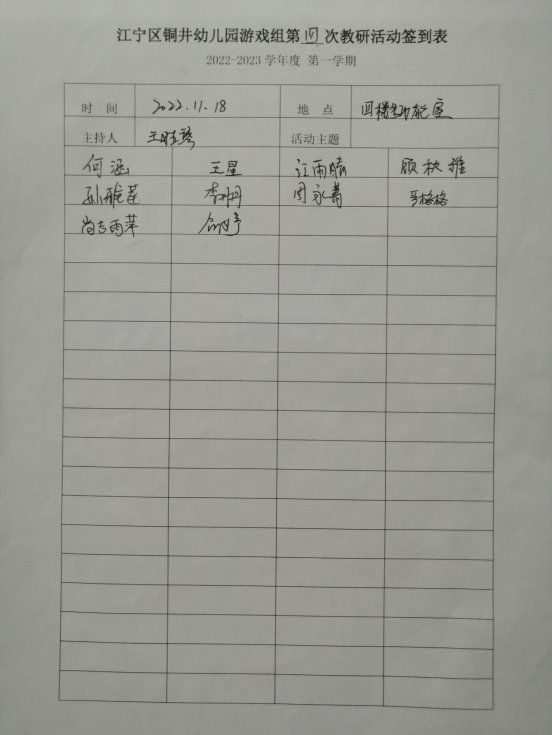 江宁区铜井幼儿园游戏组第四次教研活动签到表
2022-2023 学年度 第一学期
时 间 2022.11.18 地 点 四楼多功能室
主持人 活动主题
何涵 王星 江雨晴 顾秋雅
孙雅莹 李明明 周永寿 严格格
尚吉雨苹